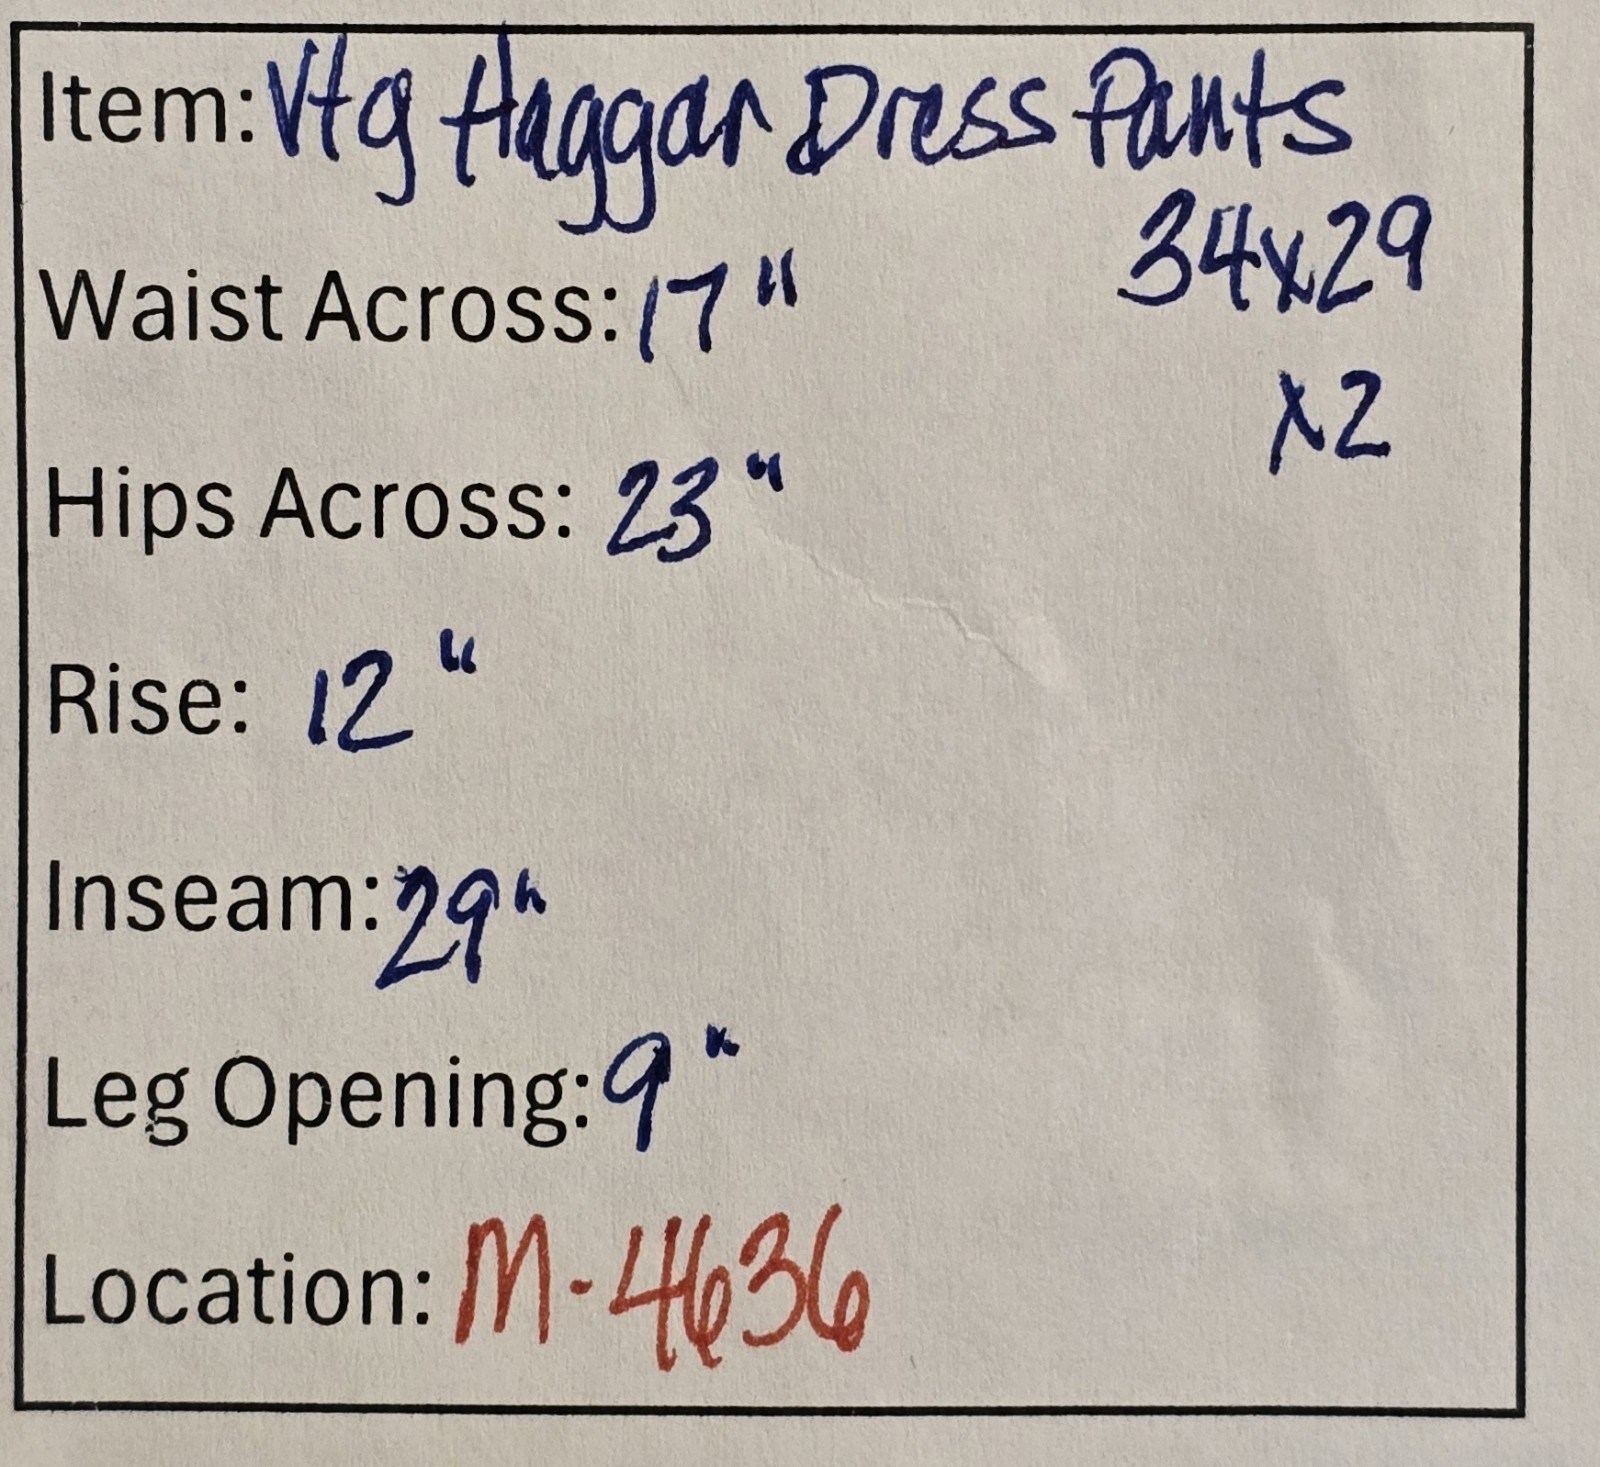 Item: Vtg Haggar Dress Pants
34x29
Waist Across: 17"
x2
Hips Across: 23"
Rise: 12"
Inseam: 29"
Leg Opening: 9"
Location: M-4636